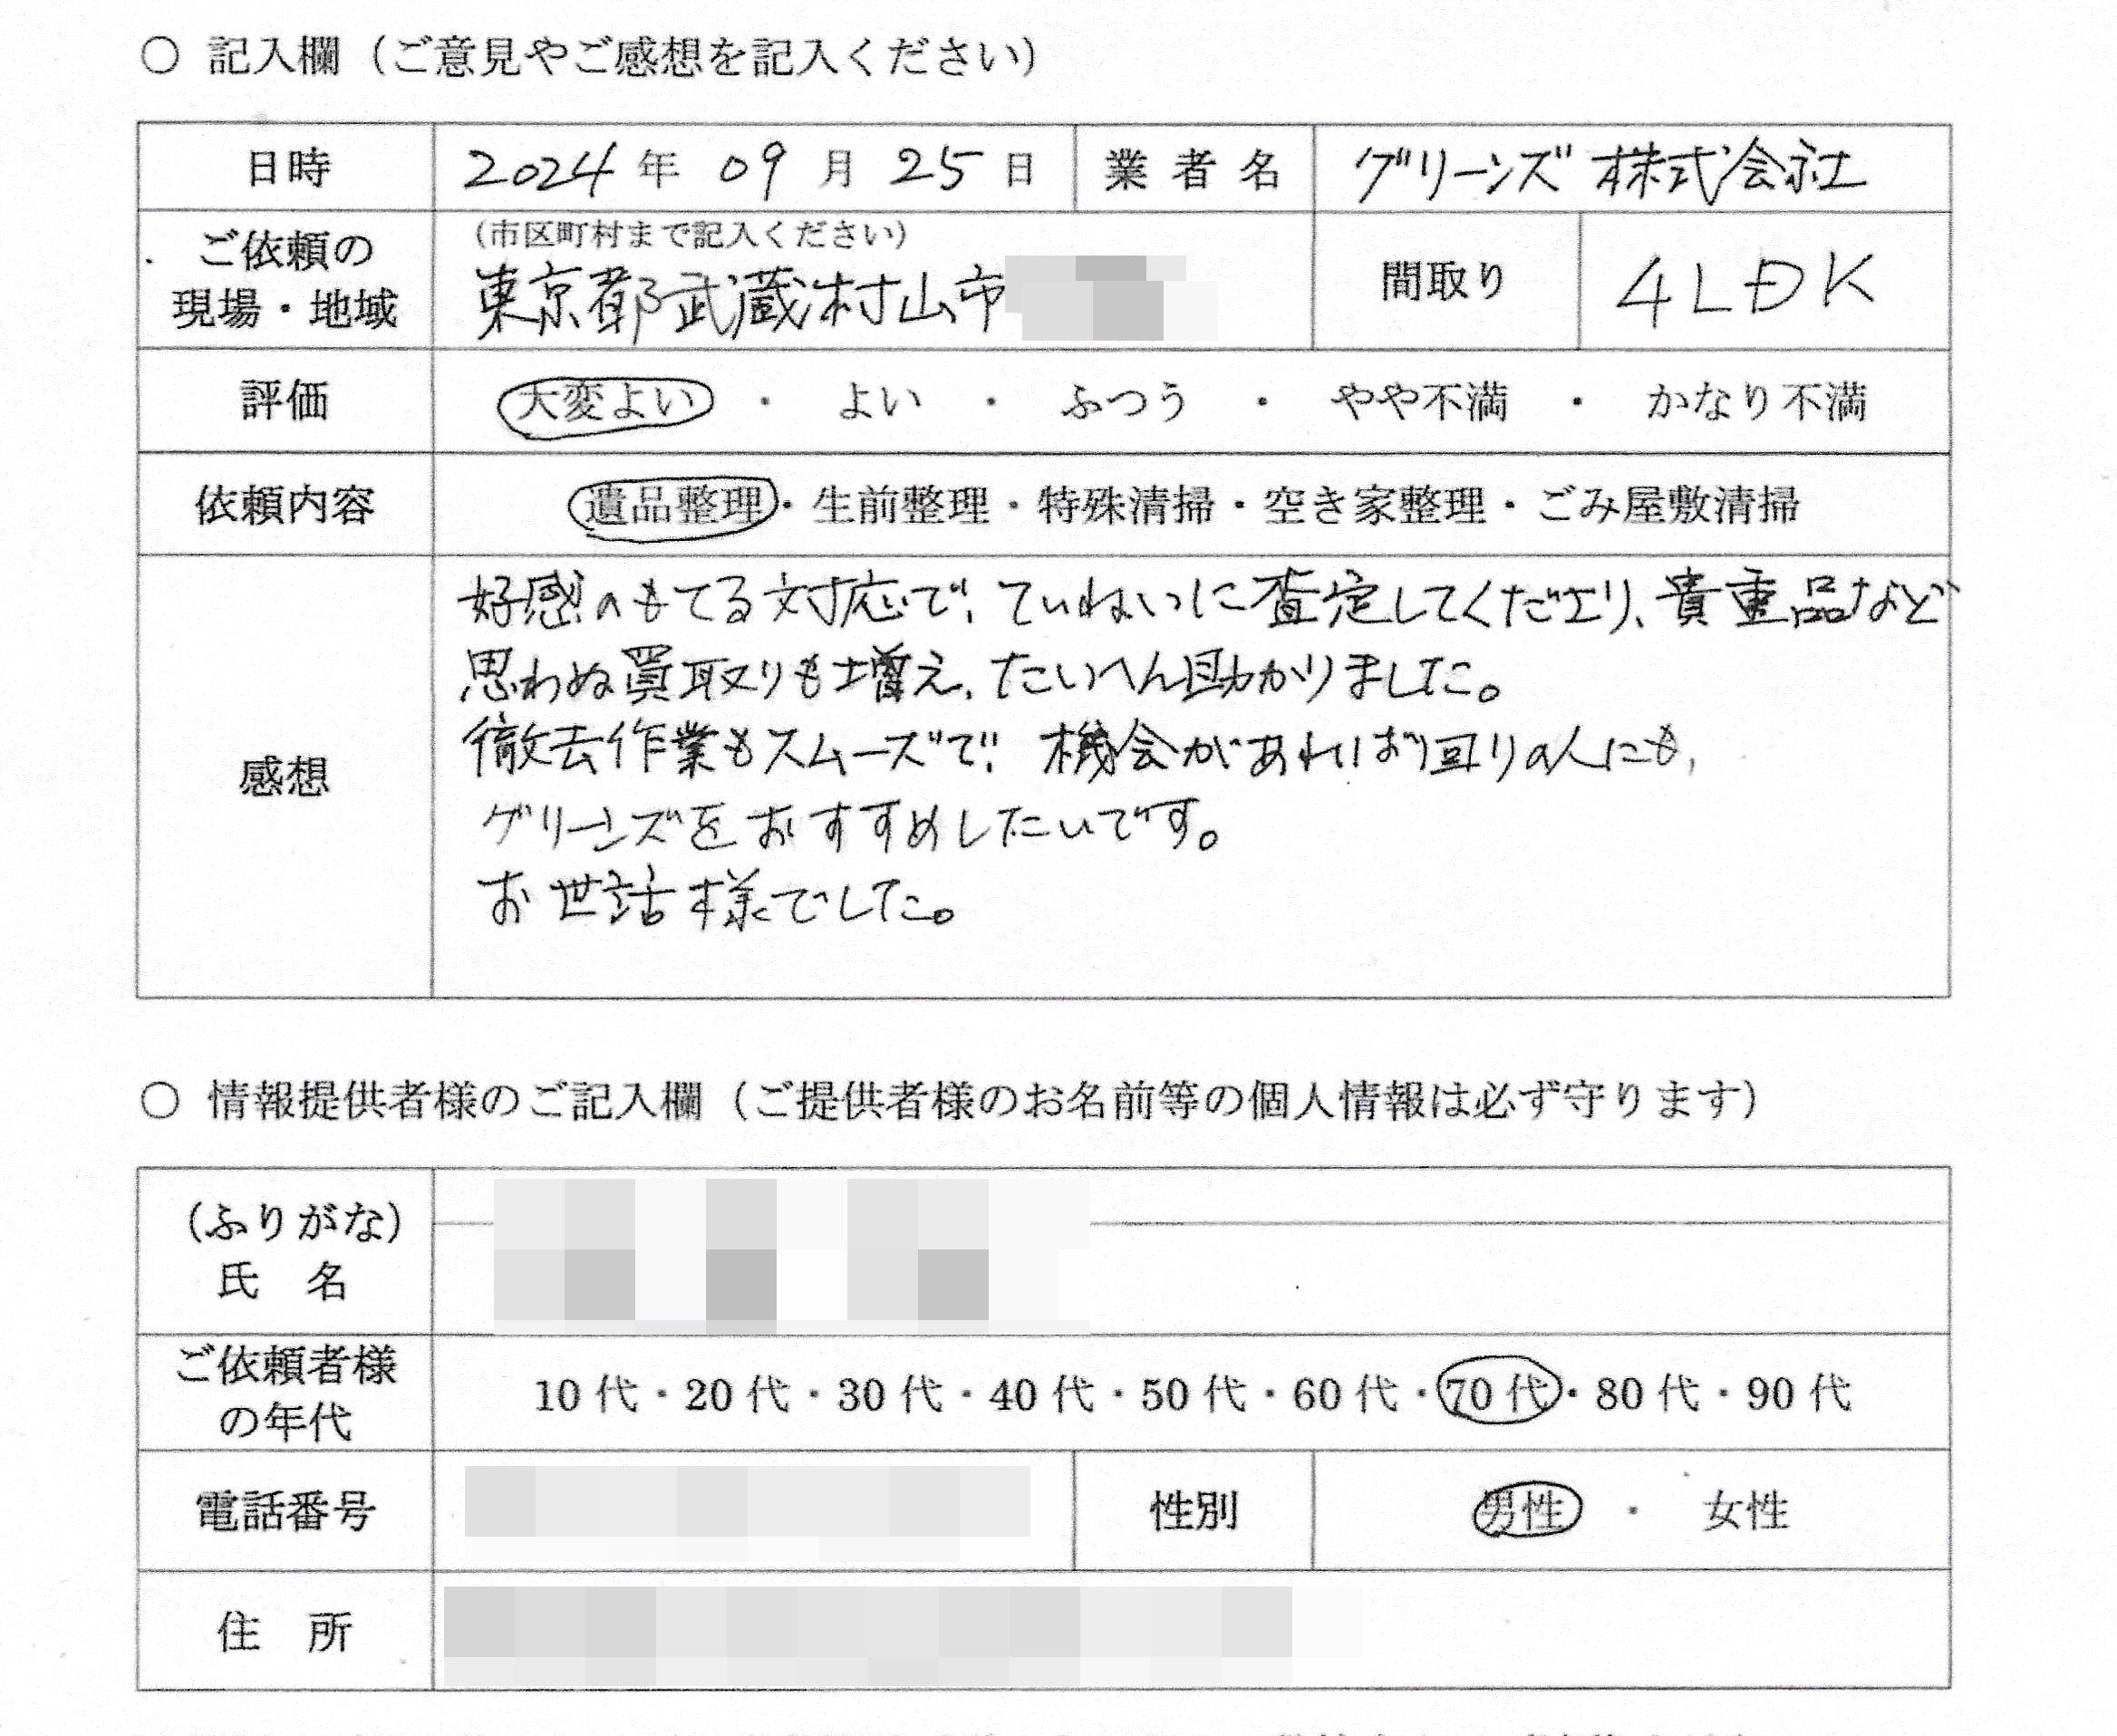 ○ 記入欄（ご意見やご感想を記入ください）
日時 2024 年 09 月 25 日 業者名 グリーンズ株式会社
（市区町村まで記入ください）
ご依頼の現場・地域 東京都武蔵村山市 間取り 4LDK
評価 大変よい ・ よい ・ ふつう ・ やや不満 ・ かなり不満
依頼内容 遺品整理・生前整理・特殊清掃・空き家整理・ごみ屋敷清掃
感想
好感のもてる対応で、ていねいに査定してくださり、貴重品など
思わぬ買取りも増え、たいへん助かりました。
徹去作業もスムーズで、機会があればお回りの人にも、
グリーンズをおすすめしたいです。
お世話様でした。
○ 情報提供者様のご記入欄（ご提供者様のお名前等の個人情報は必ず守ります）
（ふりがな）
氏 名
ご依頼者様の年代 10 代・20 代・30 代・40 代・50 代・60 代・70 代・80 代・90 代
電話番号 性別 男性 ・ 女性
住 所